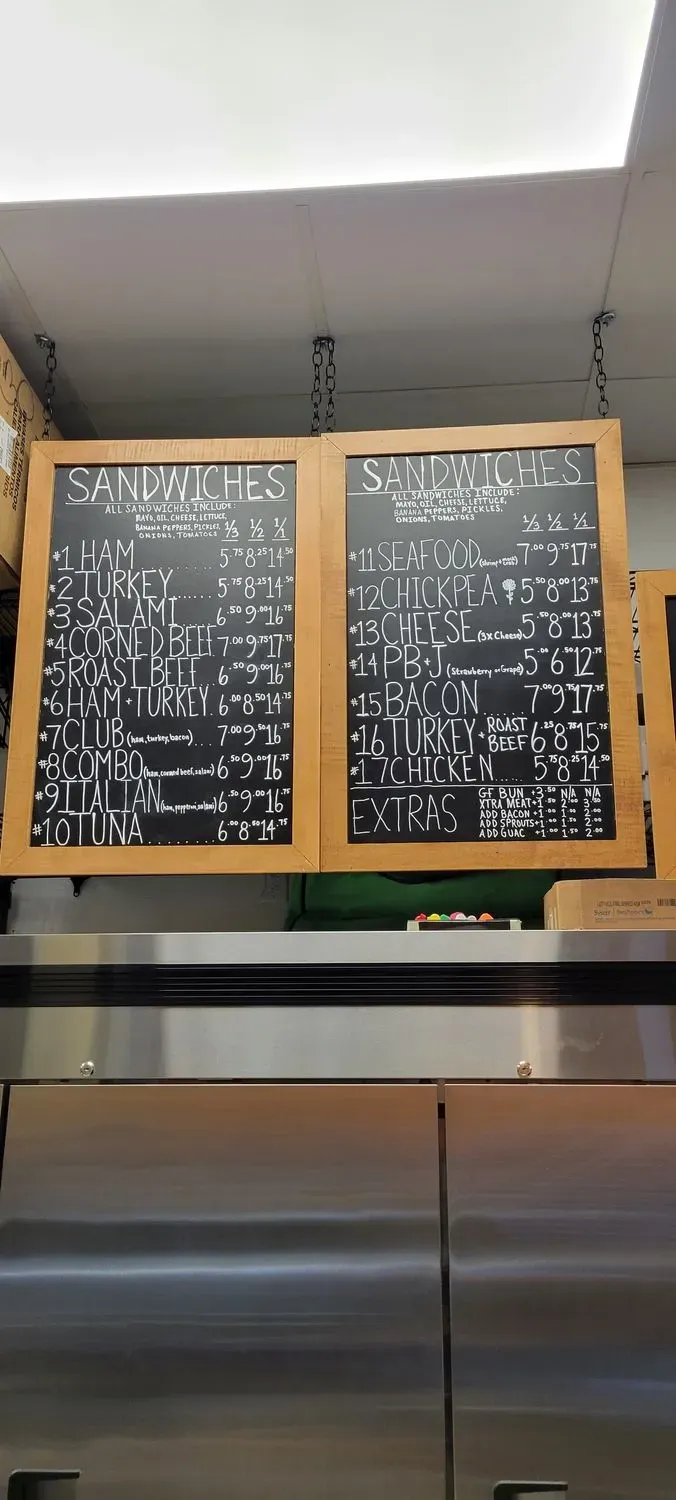 SANDWICHES
ALL SANDWICHES INCLUDE:
MAYO, OIL, CHEESE, LETTUCE,
BANANA PEPPERS, PICKLES,
ONIONS, TOMATOES
1/3 1/2 1/1
#1 HAM ...... 5.75 8.25 14.50
#2 TURKEY...... 5.75 8.25 14.50
#3 SALAMI...... 6.50 9.00 16.75
#4 CORNED BEEF 7.00 9.75 17.75
#5 ROAST BEEF .. 6.50 9.00 16.75
#6 HAM + TURKEY. 6.00 8.50 14.75
#7 CLUB (ham, turkey, bacon).... 7.00 9.50 16.75
#8 COMBO (ham, corned beef, salami) 6.50 9.00 16.75
#9 ITALIAN (ham, pepperoni, salami) 6.50 9.00 16.75
#10 TUNA......... 6.00 8.50 14.75
SANDWICHES
ALL SANDWICHES INCLUDE:
MAYO, OIL, CHEESE, LETTUCE,
BANANA PEPPERS, PICKLES,
ONIONS, TOMATOES
1/3 1/2 1/1
#11 SEAFOOD 7.00 9.75 17.75
#12 CHICKPEA 5.50 8.00 13.75
#13 CHEESE (3x Cheese) 5.50 8.00 13.75
#14 PB+J (Strawberry or Grape) 5.00 6.50 12.75
#15 BACON ..... 7.00 9.75 17.75
#16 TURKEY + ROAST BEEF 6.25 8.75 15.75
#17 CHICKEN..... 5.75 8.25 14.50
EXTRAS
GF BUN +3.50 N/A N/A
XTRA MEAT+1.50 2.00 3.50
ADD BACON +1.00 1.50 2.00
ADD SPROUTS+1.00 1.50 2.00
ADD GUAC +1.00 1.50 2.00